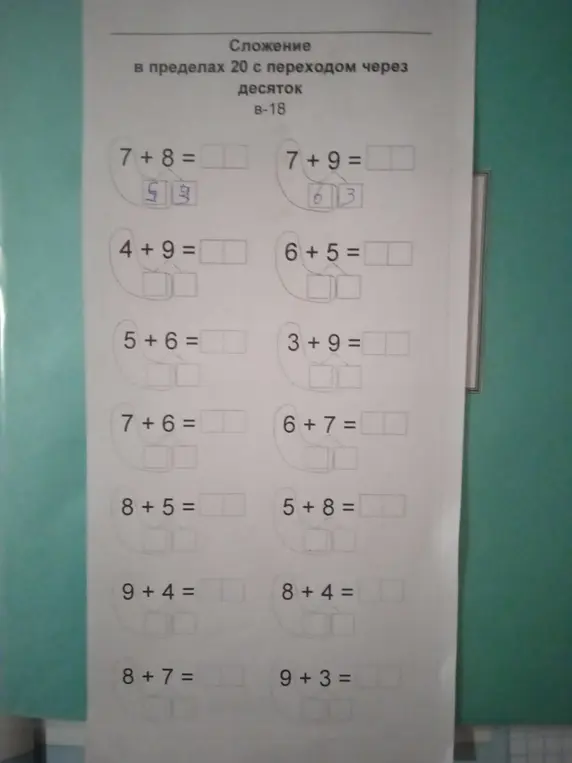 Сложение
в пределах 20 с переходом через
десяток
в-18
7 + 8 = 7 + 9 =
6 3
4 + 9 = 6 + 5 =
5 + 6 = 3 + 9 =
7 + 6 = 6 + 7 =
8 + 5 = 5 + 8 =
9 + 4 = 8 + 4 =
8 + 7 = 9 + 3 =